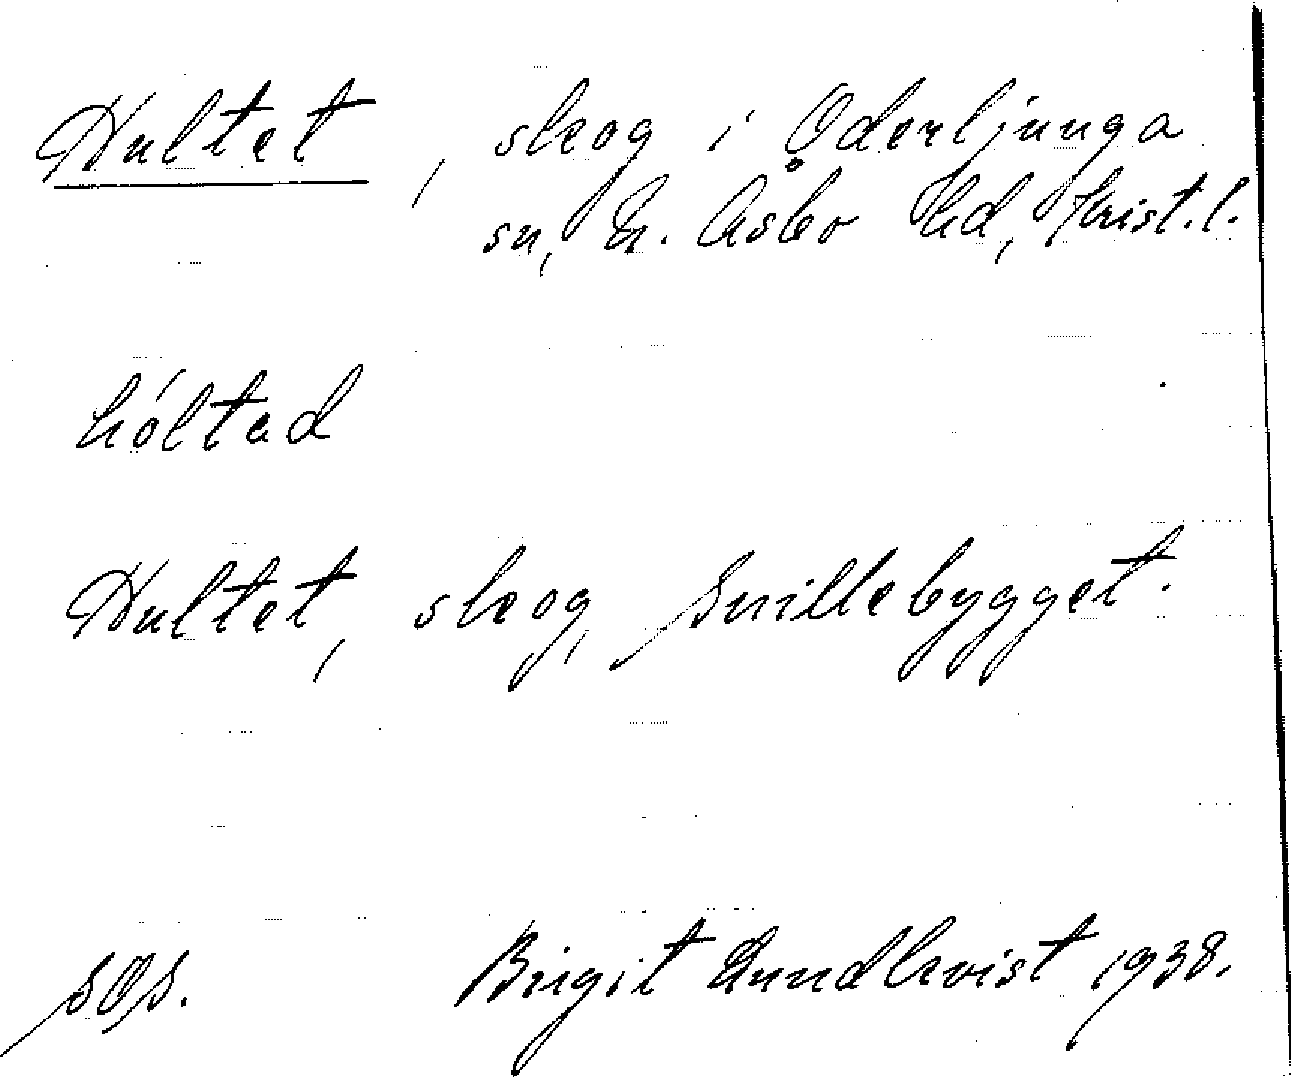 Hultet, skog i Oderljunga
sn, N. Åsbo hd, Krist. l.
hóltad
Hultet, skog, Snillebygget.
Birgit Lundkvist 1938.